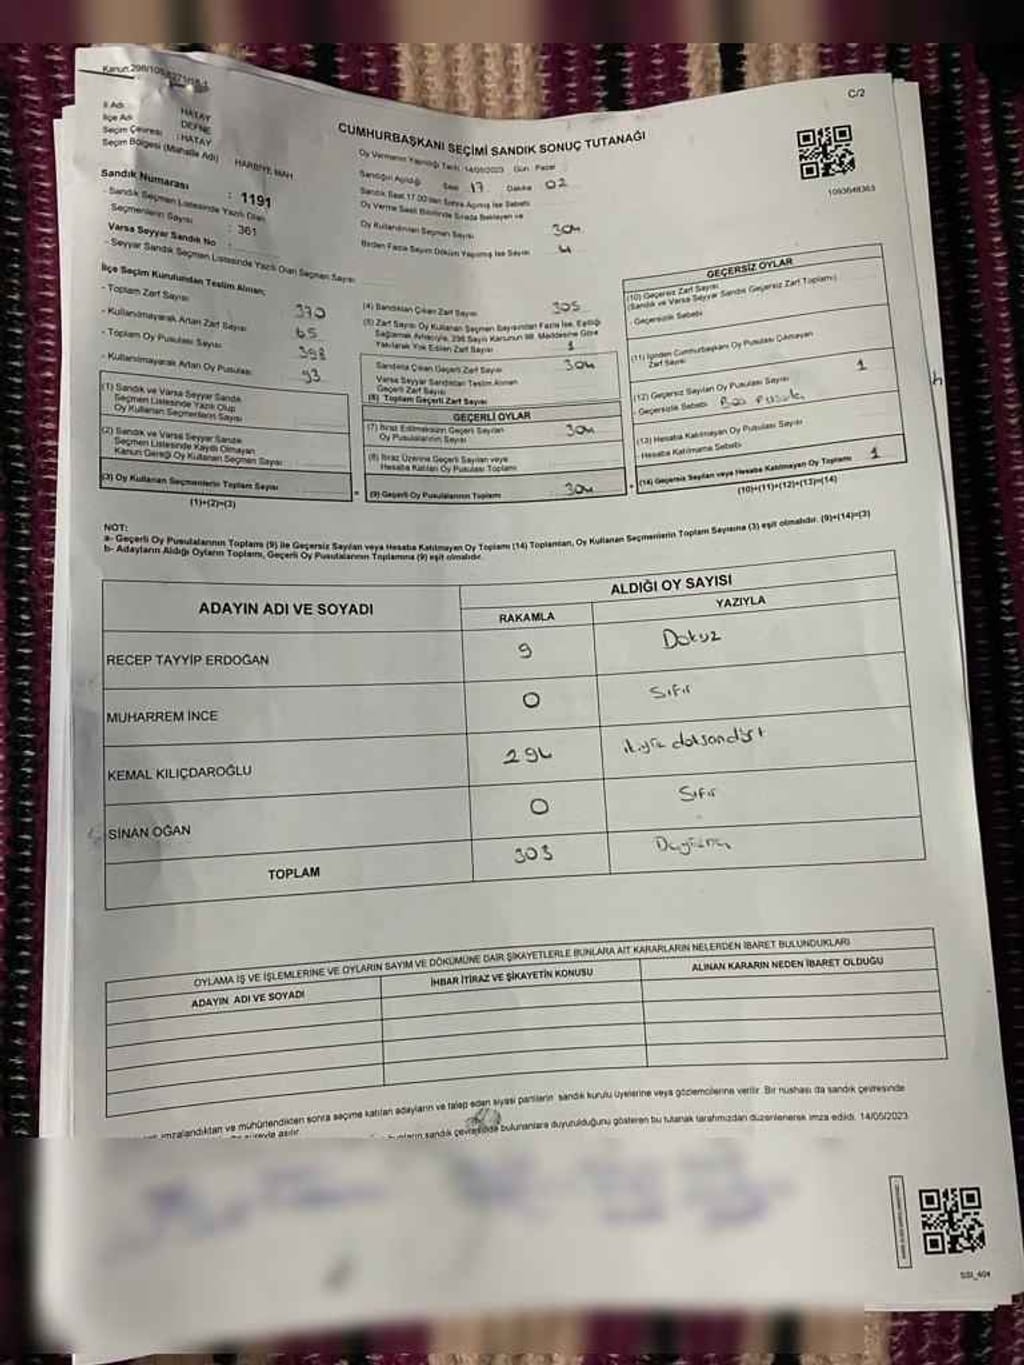 Kanun:298/105
C/2
İl Adı : HATAY
İlçe Adı : DEFNE
Seçim Çevresi : HATAY
Seçim Bölgesi (Mahalle Adı) HARBİYE MAH
Sandık Numarası : 1191
- Sandık Seçmen Listesinde Yazılı Olan
Seçmenlerin Sayısı : 361
Varsa Seyyar Sandık No :
- Seyyar Sandık Seçmen Listesinde Yazılı Olan Seçmen Sayısı
CUMHURBAŞKANI SEÇİMİ SANDIK SONUÇ TUTANAĞI
Oy Vermenin Yapıldığı Tarih: 14/05/2023 Gün: Pazar
Sandığın Açıldığı Saat 17 Dakika 02
Sandık Saat 17.00'den Sonra Açılmış İse Sebebi
Oy Verme Saati Bitiminde Sırada Bekleyen ve
Oy Kullandırılan Seçmen Sayısı
Birden Fazla Sayım Döküm Yapılmış İse Sayısı
1093648363
İlçe Seçim Kurulundan Teslim Alınan;
- Toplam Zarf Sayısı 370
- Kullanılmayarak Artan Zarf Sayısı 65
- Toplam Oy Pusulası Sayısı 398
- Kullanılmayarak Artan Oy Pusulası 93
(1) Sandık ve Varsa Seyyar Sandık
Seçmen Listesinde Yazılı Olup
Oy Kullanan Seçmenlerin Sayısı
(2) Sandık ve Varsa Seyyar Sandık
Seçmen Listesinde Kaydı Olmayan
Kanun Gereği Oy Kullanan Seçmen Sayısı
(3) Oy Kullanan Seçmenlerin Toplam Sayısı
(1)+(2)=(3)
(4) Sandıktan Çıkan Zarf Sayısı 305
(5) Zarf Sayısı Oy Kullanan Seçmen Sayısından Fazla İse, Eşitliği
Sağlamak Amacıyla, 298 Sayılı Kanunun 98. Maddesine Göre
Yakılarak Yok Edilen Zarf Sayısı 1
Sandıkta Çıkan Geçerli Zarf Sayısı 304
Varsa Seyyar Sandıktan Teslim Alınan
Geçerli Zarf Sayısı
(6) Toplam Geçerli Zarf Sayısı
GEÇERLİ OYLAR
(7) İtiraz Edilmeksizin Geçerli Sayılan
Oy Pusulalarının Sayısı 304
(8) İtiraz Üzerine Geçerli Sayılan veya
Hesaba Katılan Oy Pusulası Toplamı
(9) Geçerli Oy Pusulalarının Toplamı 304
GEÇERSİZ OYLAR
(10) Geçersiz Zarf Sayısı
(Sandık ve Varsa Seyyar Sandık Geçersiz Zarf Toplamı)
- Geçersizlik Sebebi
(11) İçinden Cumhurbaşkanı Oy Pusulası Çıkmayan
Zarf Sayısı
(12) Geçersiz Sayılan Oy Pusulası Sayısı 1
- Geçersizlik Sebebi Boş Pusula
(13) Hesaba Katılmayan Oy Pusulası Sayısı
- Hesaba Katılmama Sebebi
(14) Geçersiz Sayılan veya Hesaba Katılmayan Oy Toplamı 1
(10)+(11)+(12)+(13)=(14)
NOT:
a- Geçerli Oy Pusulalarının Toplamı (9) ile Geçersiz Sayılan veya Hesaba Katılmayan Oy Toplamı (14) Toplamları, Oy Kullanan Seçmenlerin Toplam Sayısına (3) eşit olmalıdır. (9)+(14)=(3)
b- Adayların Aldığı Oyların Toplamı, Geçerli Oy Pusulalarının Toplamına (9) eşit olmalıdır.
ADAYIN ADI VE SOYADI ALDIĞI OY SAYISI
RAKAMLA YAZIYLA
RECEP TAYYİP ERDOĞAN 9 Dokuz
MUHARREM İNCE 0 Sıfır
KEMAL KILIÇDAROĞLU 294 ikiyüz doksandört
SİNAN OĞAN 0 Sıfır
TOPLAM 303
OYLAMA İŞ VE İŞLEMLERİNE VE OYLARIN SAYIM VE DÖKÜMÜNE DAİR ŞİKAYETLERLE BUNLARA AİT KARARLARIN NELERDEN İBARET BULUNDUKLARI
ADAYIN ADI VE SOYADI İHBAR İTİRAZ VE ŞİKAYETİN KONUSU ALINAN KARARIN NEDEN İBARET OLDUĞU
imzalandıktan ve mühürlendikten sonra seçime katılan adayların ve talep eden siyasi partilerin sandık kurulu üyelerine veya gözlemcilerine verilir. Bir nüshası da sandık çevresinde
süreyle asılır. bunların sandık çevresinde bulunanlara duyurulduğunu gösteren bu tutanak tarafımızdan düzenlenerek imza edildi. 14/05/2023
SSI_404